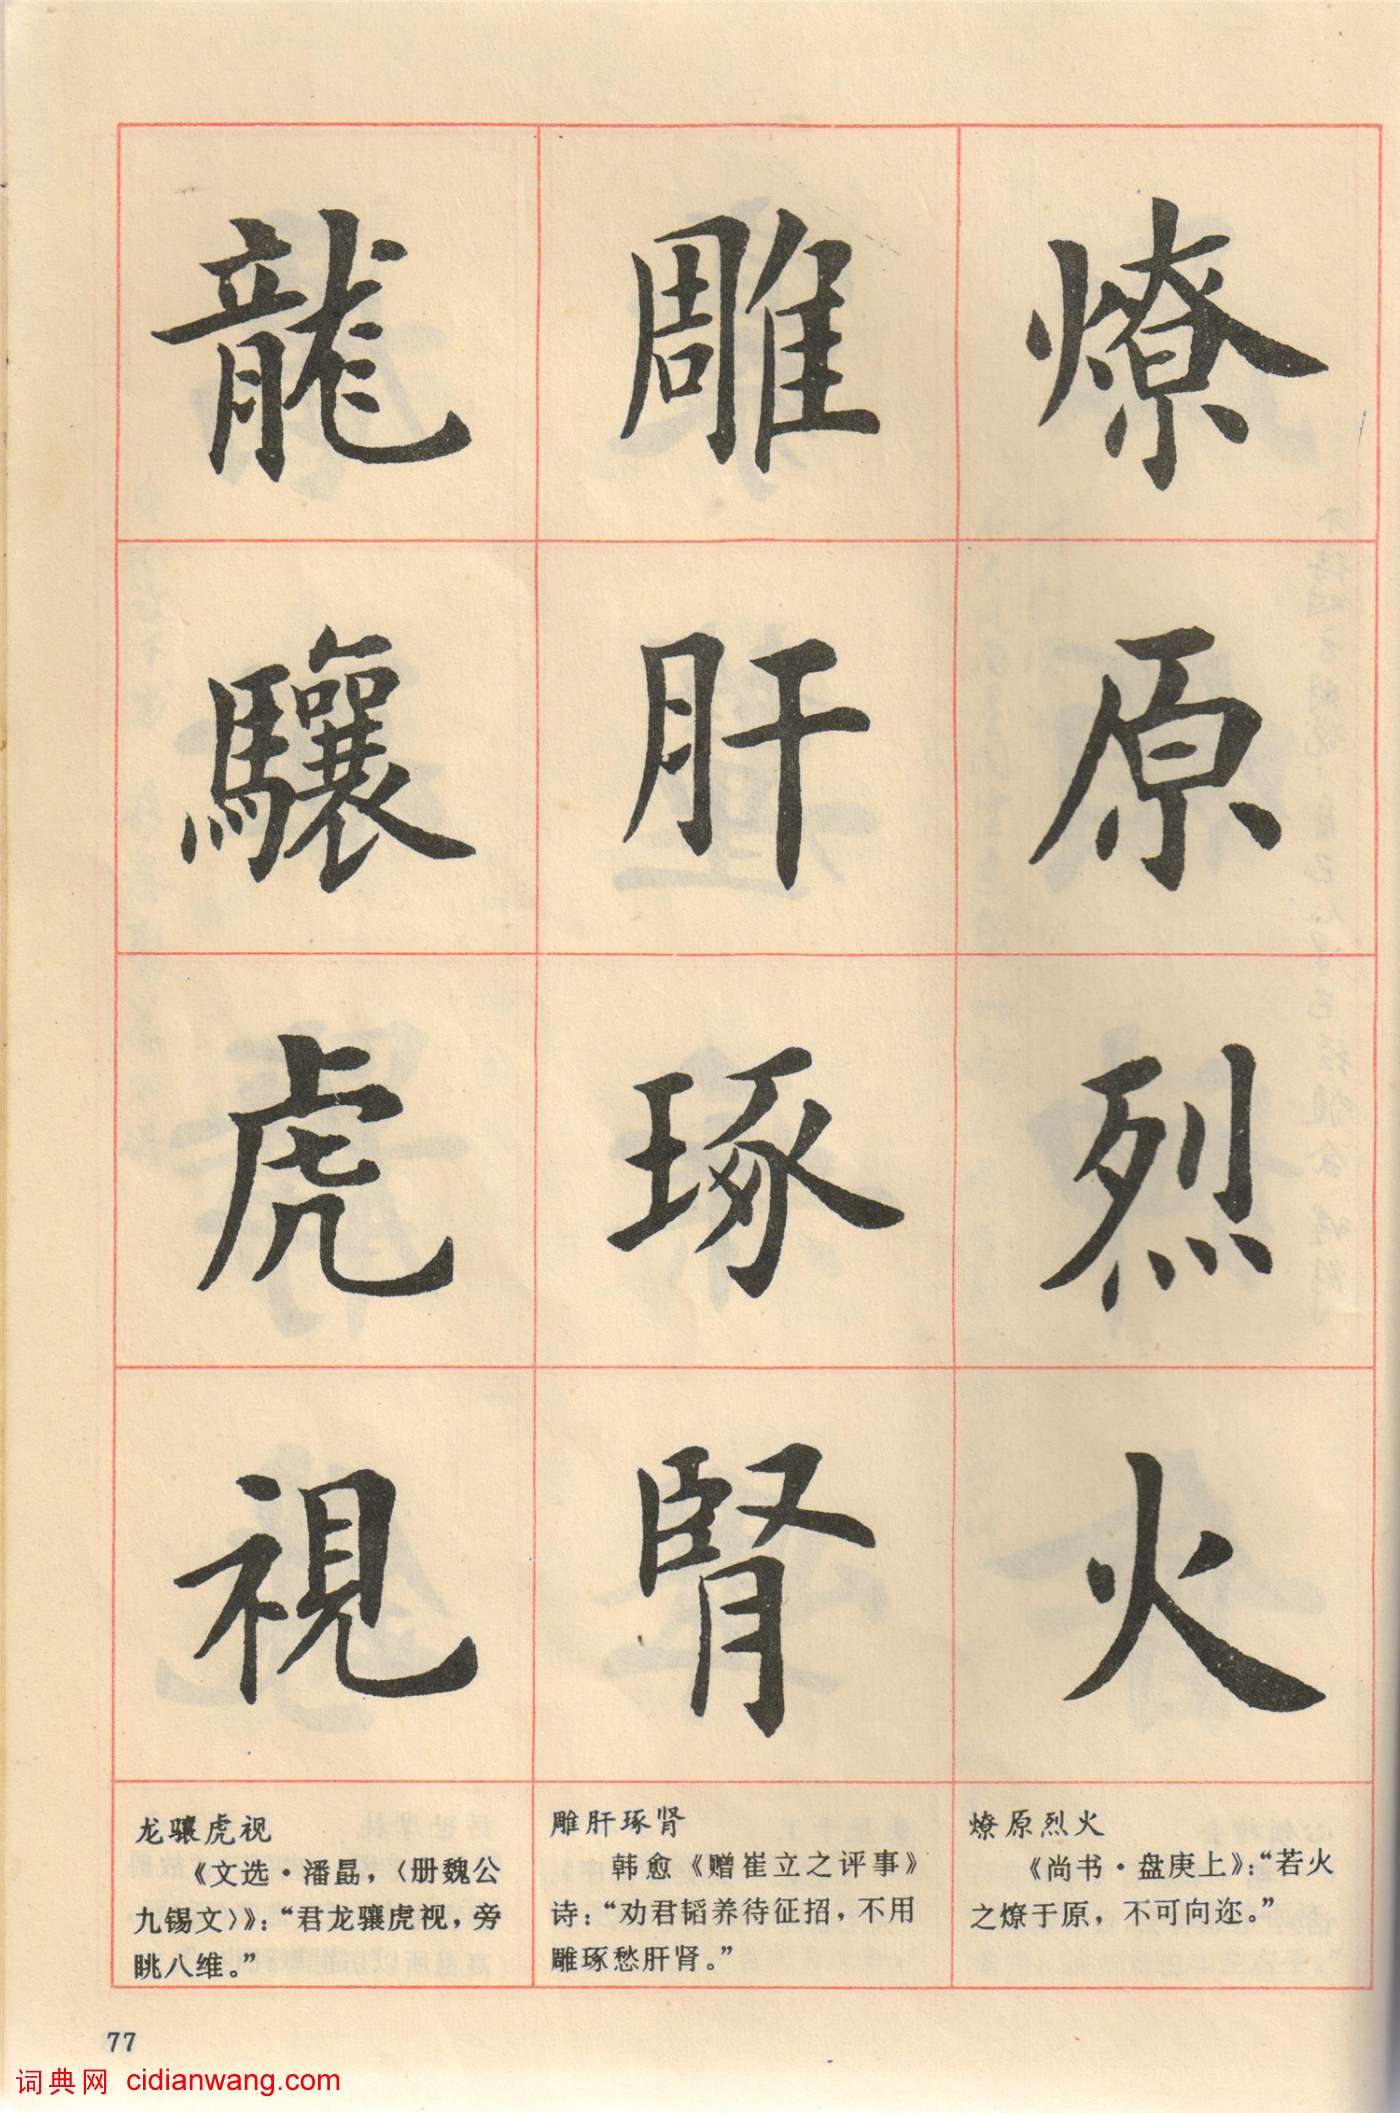 燎原烈火
雕肝琢腎
龍驤虎視
燎原烈火
《尚书·盘庚上》：“若火
之燎于原，不可向迩。”
雕肝琢肾
韩愈《赠崔立之评事》
诗：“劝君韬养待征招，不用
雕琢愁肝肾。”
龙骧虎视
《文选·潘勗，〈册魏公
九锡文〉》：“君龙骧虎视，旁
眺八维。”
77
词典网 cidianwang.com